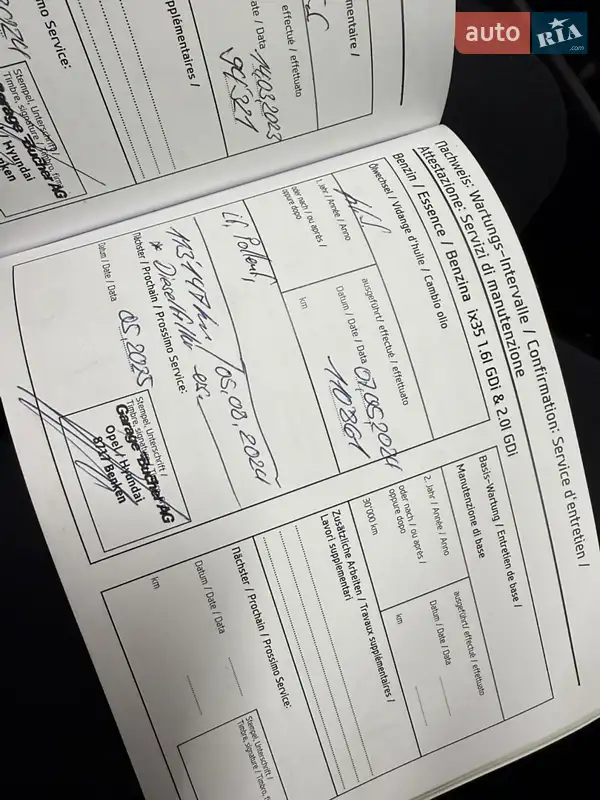 auto RIA.com
mentaire /
effectué / effettuato
ate / Data 14.03.2023
94'321
pplémentaires /
imo Service:
Stempel, Unterschrift /
Timbre, signature /
Garage Bucher AG
Hyundai
Benken
Nachweis: Wartungs-Intervalle / Confirmation: Service d'entretien /
Attestazione: Servizi di manutenzione
Benzin / Essence / Benzina ix35 1.6l GDi & 2.0l GDi
Ölwechsel / Vidange d'huile / Cambio olio
1. Jahr / Année / Anno
oder nach / ou après /
oppure dopo
ausgeführt / effectué / effettuato
Datum / Date / Data 07.05.2024
km 110861
113'147 km / 05.08.2024
Nächster / Prochain / Prossimo Service:
Datum / Date / Data 05.2025
Stempel, Unterschrift /
Timbre, signature /
Garage Bucher AG
Opel / Hyundai
8717 Benken
Basis-Wartung / Entretien de base /
Manutenzione di base
2. Jahr / Année / Anno
oder nach / ou après /
oppure dopo
30'000 km
ausgeführt / effectué / effettuato
Datum / Date / Data
km
Zusätzliche Arbeiten / Travaux supplémentaires /
Lavori supplementari
Nächster / Prochain / Prossimo Service:
Datum / Date / Data
km
Stempel, Unterschrift /
Timbre, signature / Timbro, f